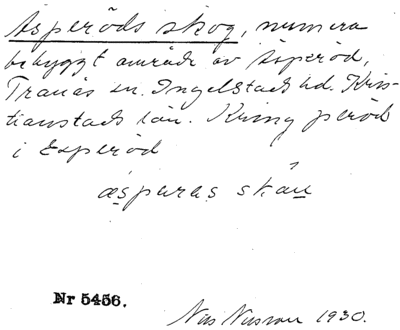 Äsperöds skog, numera
bebyggt område av Äsperöd,
Tranås sn. Ingelstads hd. Kris-
tianstads län. Kring peröd
i Esperöd
äsparas skåu
Nr 5456.
Nils 1930.